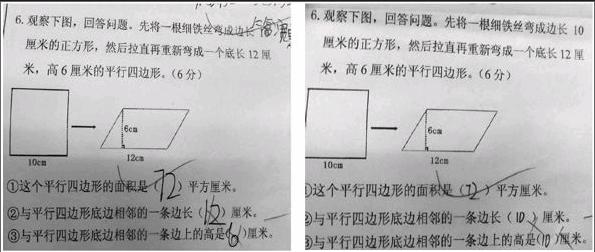 6. 观察下图，回答问题。先将一根细铁丝弯成边长
厘米的正方形，然后拉直再重新弯成一个底长 12 厘
米，高 6 厘米的平行四边形。（6 分）
6cm
10cm
12cm
①这个平行四边形的面积是（72）平方厘米。
②与平行四边形底边相邻的一条边长（）厘米。
③与平行四边形底边相邻的一条边上的高是（6）厘米。
6. 观察下图，回答问题。先将一根细铁丝弯成边长 10
厘米的正方形，然后拉直再重新弯成一个底长 12 厘
米，高 6 厘米的平行四边形。（6 分）
6cm
10cm
12cm
①这个平行四边形的面积是（72）平方厘米。
②与平行四边形底边相邻的一条边长（10）厘米。
③与平行四边形底边相邻的一条边上的高是（10）厘米。